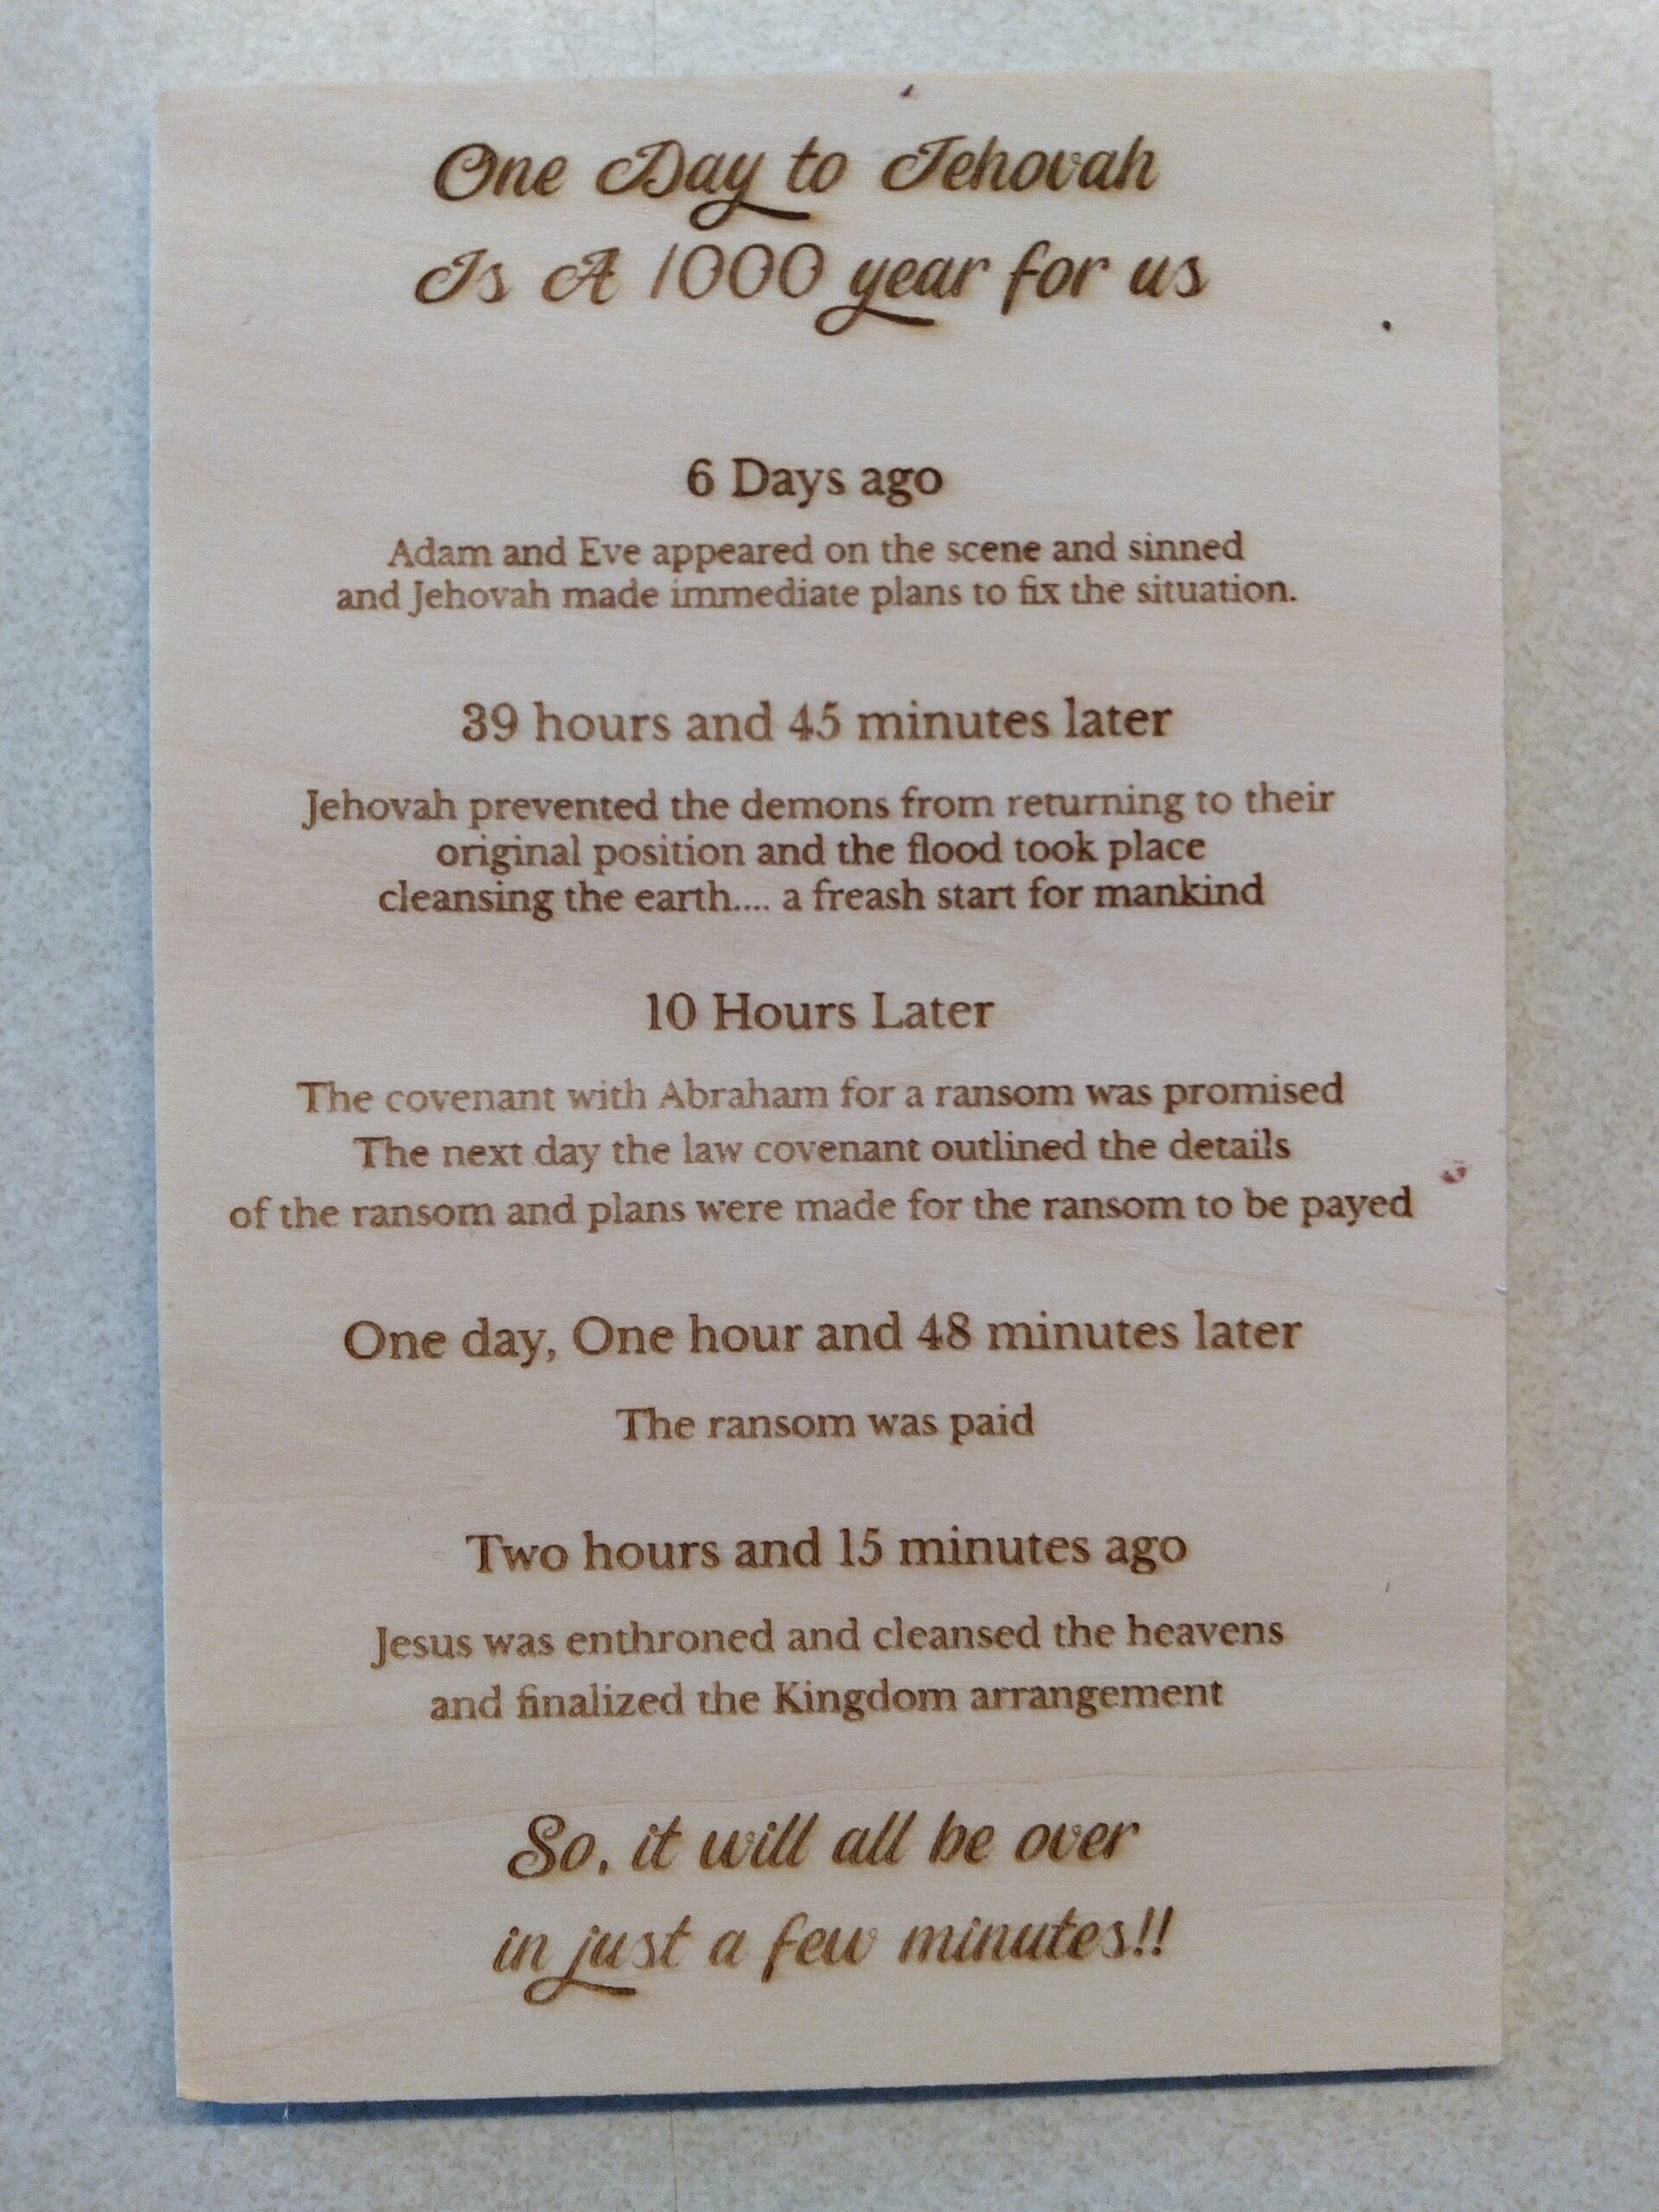 One Day to Jehovah
Is A 1000 year for us
6 Days ago
Adam and Eve appeared on the scene and sinned
and Jehovah made immediate plans to fix the situation.
39 hours and 45 minutes later
Jehovah prevented the demons from returning to their
original position and the flood took place
cleansing the earth.... a freash start for mankind
10 Hours Later
The covenant with Abraham for a ransom was promised
The next day the law covenant outlined the details
of the ransom and plans were made for the ransom to be payed
One day, One hour and 48 minutes later
The ransom was paid
Two hours and 15 minutes ago
Jesus was enthroned and cleansed the heavens
and finalized the Kingdom arrangement
So, it will all be over
in just a few minutes!!